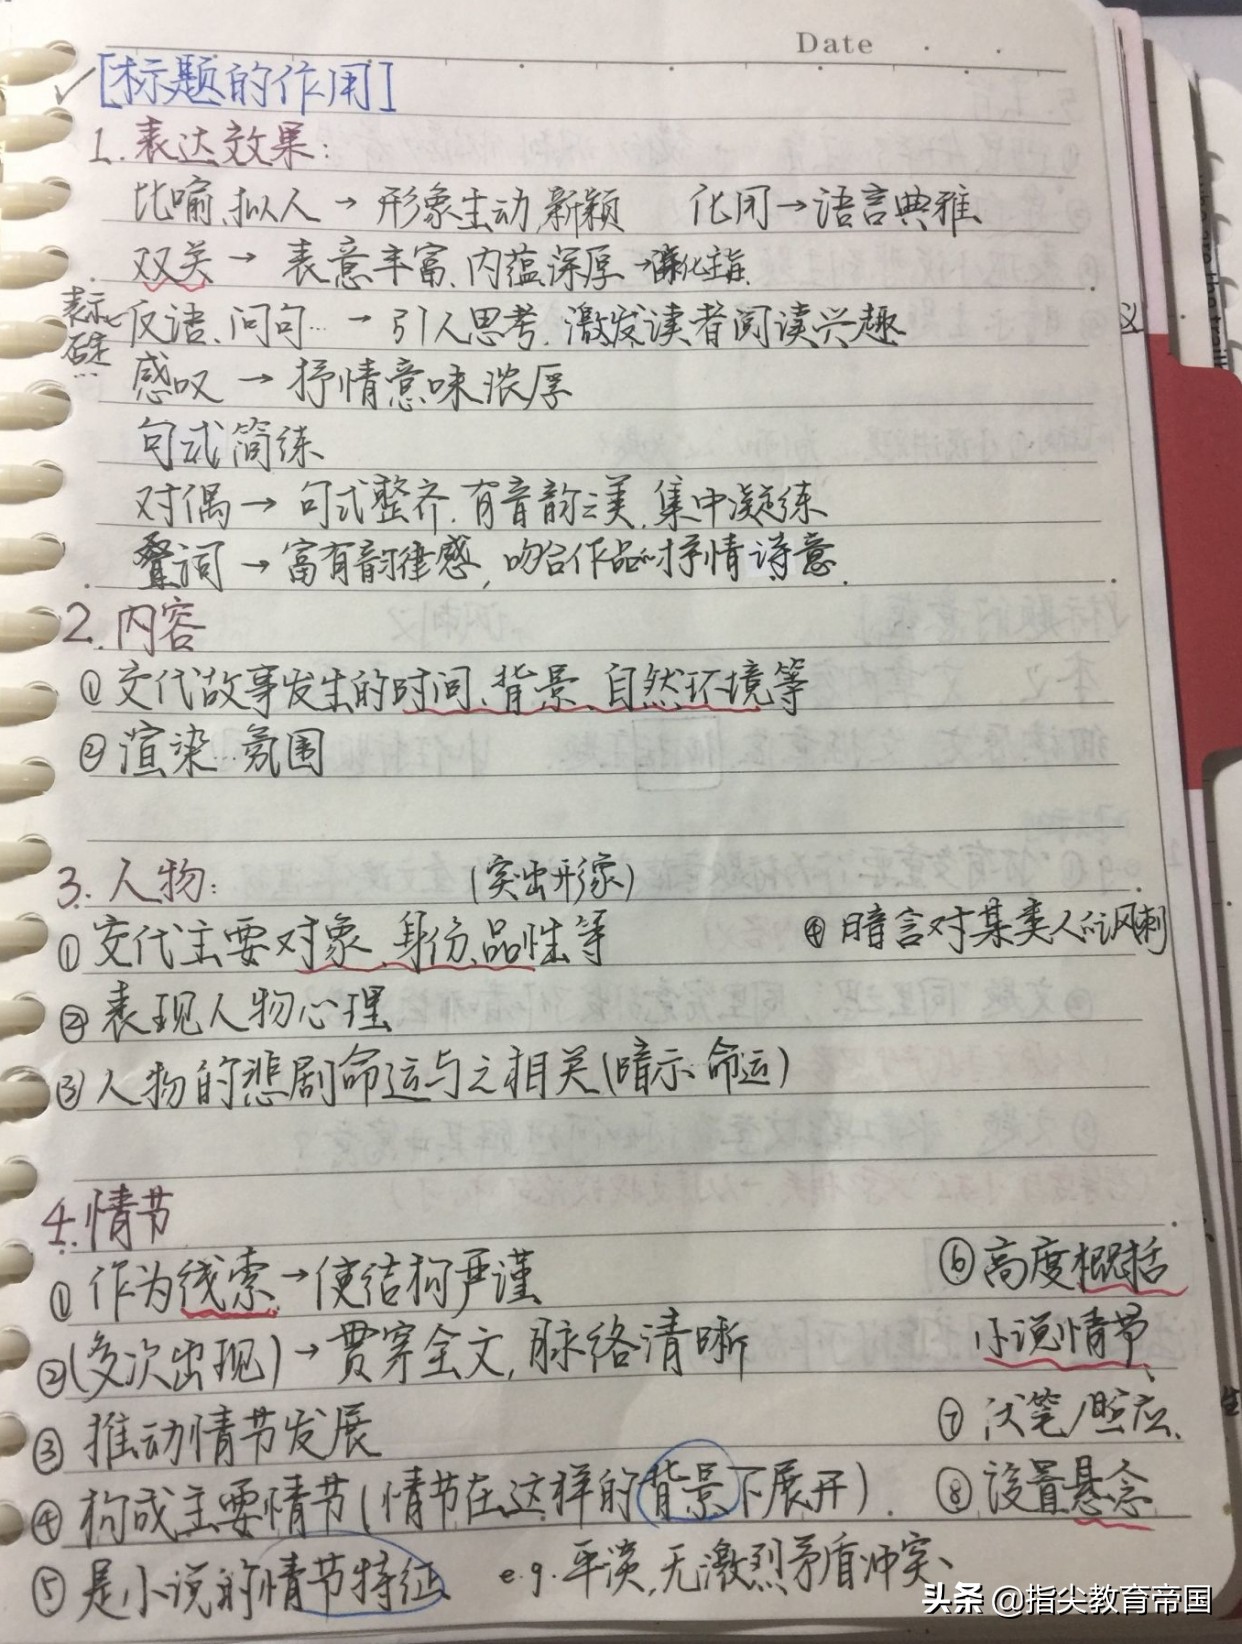 Date
[标题的作用]
1. 表达效果:
比喻、拟人→形象生动,新颖 化用→语言典雅
双关→表意丰富、内蕴深厚→深化主旨.
表示否定…
反语、问句…→引人思考,激发读者阅读兴趣
感叹→抒情意味浓厚
句式简练
对偶→句式整齐,有音韵之美,集中凝练
叠词→富有韵律感,吻合作品的抒情诗意.
2. 内容
①交代故事发生的时间、背景、自然环境等
②渲染…氛围
3. 人物: (突出形象)
①交代主要对象、身份、品性等 ④暗言对某类人的讽刺
②表现人物心理
③人物的悲剧命运与之相关(暗示命运)
4. 情节
①作为线索→使结构严谨 ⑥高度概括
小说情节、
②(多次出现)→贯穿全文,脉络清晰
③推动情节发展 ⑦伏笔/照应、
④构成主要情节(情节在这样的背景下展开). ⑧设置悬念
⑤是小说的情节特征 e.g. 平淡,无激烈矛盾冲突、
头条 @指尖教育帝国